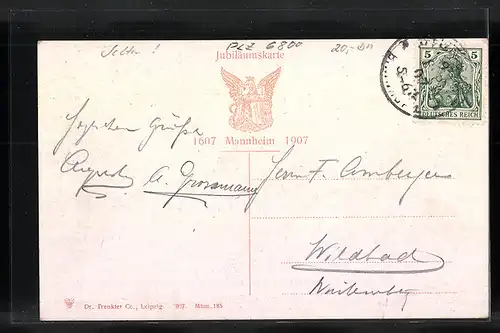 Selten!
PLZ 6800
20,- DM
Jubiläumskarte
5 5
DEUTSCHES REICH
1607 Mannheim 1907
Herzlichen Grüße
A. Grossmann
Herrn F. Amberger
Wildbad
Württemberg
Dr. Trenkler Co., Leipzig. 1907. Mnm. 185